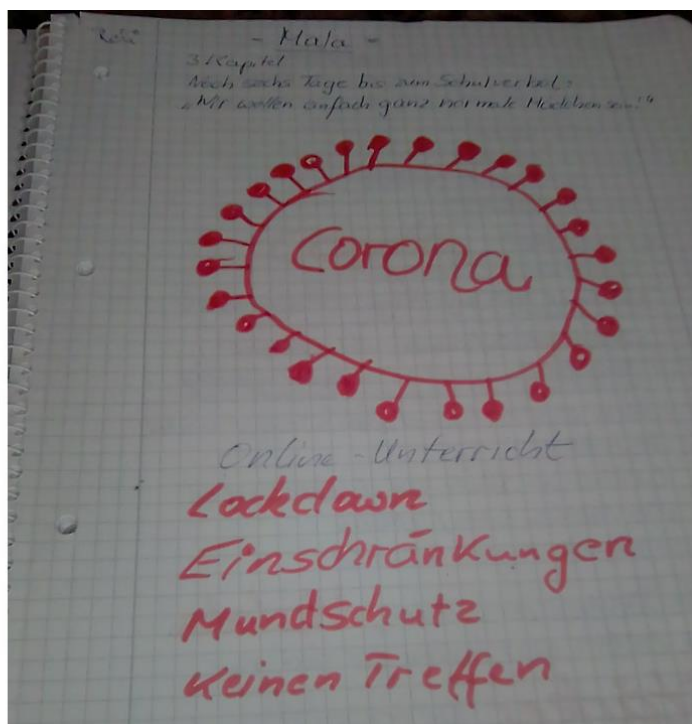 - Mala -
3 Kapitel
Noch sechs Tage bis zum Schulverbot:
„Wir wollen einfach ganz normale Mädchen sein!“
Corona
Online-Unterricht
Lockdown
Einschränkungen
Mundschutz
Keinen Treffen